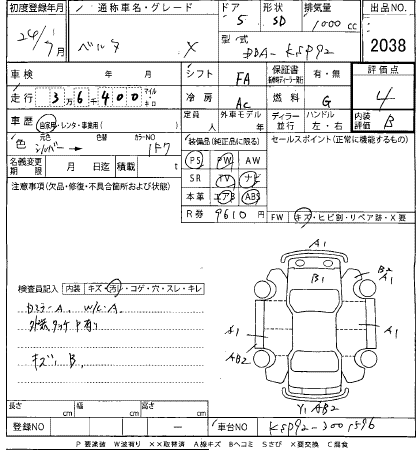 初度登録年月 / 通称車名・グレード ドア 形状 排気量 出品No.
24/ 月 ベルタ X 5 SD 1000 cc
型式 DBA-KSP92 2038
車検 年 月 シフト FA 保証書 有・無 評価点
走行 36400 マイル キロ 冷房 AC 燃料 G 4
車歴 自家用・レンタ・事業用( ) 定員 人 外車モデル 年 ディーラー 並行 ハンドル 左・右 内装評価 B
色 元色 シルバー → カラーNO 1F7 装備品(純正品に限る) セールスポイント(正常に機能するもの)
PS PW AW
名義変更期限 月 日迄 積載 t SR TV ナビ
注意事項(欠品・修復・不具合箇所および状態) 本革 エアB ABS
R券 9610 円 FW キズ・ヒビ割・リペア跡・X要
A1
B1 B2 A1
検査員記入 内装 キズ・汚・コゲ・穴・スレ・キレ
A、W/C・A
A1 A1
キズ、B、 AB2
Y1 AB2
長さ cm 幅 cm 高さ cm
登録NO ー 車台NO KSP92-
P 要塗装 W波有り XX取替済 A線キズ Bヘコミ Sさび X要交換 C腐食